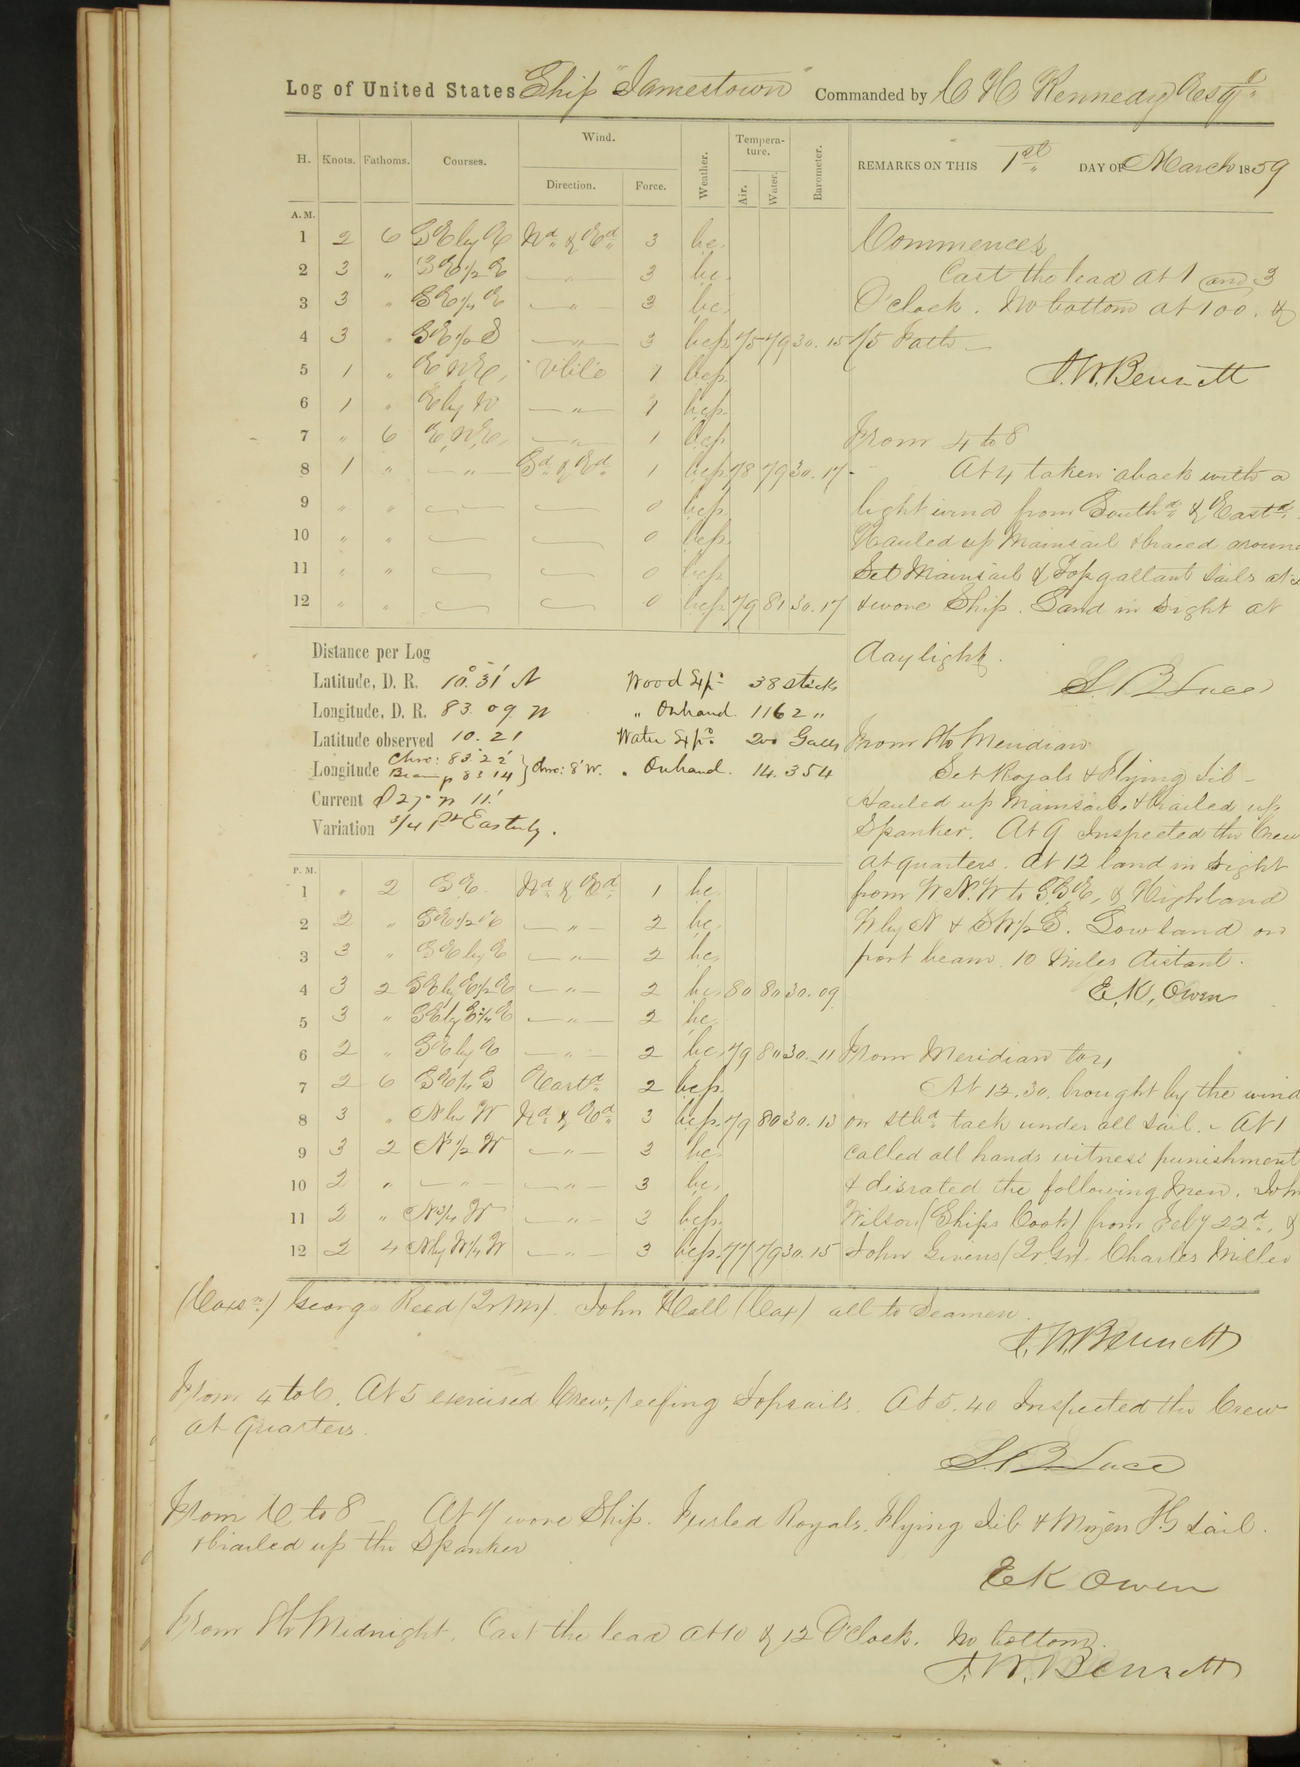 Log of United States Ship "Jamestown" Commanded by C H Kennedy Esqr
H. Knots. Fathoms. Courses. Wind. Direction. Force. Weather. Tempera-ture. Air. Water. Barometer.
REMARKS ON THIS 1st DAY OF March 1859
A.M.
1 2 6 SE by E Nd & Ed 3 bc.
2 3 " SE 1/2 E " 3 bc.
3 3 " SE 1/4 E " 3 bc.
4 3 " " 3 bcp. 75 79 30.15
5 1 " E.N.E. Vble 1 bcp.
6 1 " E by N " 1 bcp.
7 " 6 E.N.E. " 1 bcp.
8 1 " " Sd & Ed 1 bcp 78 79 30.17
9 " " 0 bcp.
10 " " 0 bcp.
11 " " 0 bcp.
12 " " 0 bcp 79 81 30.17
Commences
Cast the lead at 1 and 3
O'clock. No bottom at 100. &
75 Faths
J.W. Bennett
From 4 to 8
At 4 taken aback with a
light wind from Southd & Eastd.
Hauled up Mainsail & braced around
Set Mainsail & Topgallant sails
& wore Ship. Land in sight at
daylight.
S.B. Luce
Distance per Log
Latitude, D. R. 10.31' N
Longitude, D. R. 83 09 W
Latitude observed 10.21
Longitude Chro: 83°22' 83 14 Chro: 8' W.
Current 11'
Variation 3/4 Pt Easterly.
Wood Exp: 38 sticks
" Onhand. 1162 "
Water Exp: 200 Galls
" Onhand. 14.354
From 8 to Meridian
Set Royals & Flying Jib -
Hauled up Mainsail, & brailed up
Spanker. At 9 Inspected the Crew
at quarters. At 12 land in sight
from W.N.W to S.S.E, & Highland
W by N & SW 1/2 S. Low land on
port beam 10 miles distant.
E.K. Owen
P.M.
1 " 2 SE. Nd & Ed 1 bc.
2 2 " SE 1/2 E " 2 bc.
3 3 " SE by E " 2 bc.
4 3 2 SE by E 1/2 E " 2 bc. 80 80 30.09
5 3 " SE by E 3/4 E " 2 bc.
6 2 " SE by E " 2 bc. 79 80 30.11
7 2 6 SE 1/4 S Eastd 2 bcp.
8 3 " N by W Nd & Ed 3 bcp. 79 80 30.13
9 3 2 N 1/2 W " 3 bc.
10 2 " " " 3 bc.
11 2 " N 3/4 W " 3 bcp.
12 2 4 N by W 1/4 W " 3 bcp. 77 79 30.15
From Meridian to 4
At 12.30. brought by the wind
on stbd tack under all sail. - At 1
called all hands witness punishment
& disrated the following Men. John
Wilson (Ships Cook) from Feby 22d, &
John Givens (Qr Gr). Charles Miller
(Coxsn) George Reed (Qr Mr). John Hall (Cox) all to Seamen.
J.W. Bennett
From 4 to 6. At 5 exercised Crew, reefing Topsails. At 5.40 Inspected the Crew
at Quarters.
S.B. Luce
From 6 to 8 - At 7 wore Ship. Furled Royals, Flying Jib & Mizen TG sail.
& brailed up the Spanker
E K Owen
From 8 to Midnight. Cast the lead at 10 & 12 O'Clock. No bottom.
J.W. Bennett